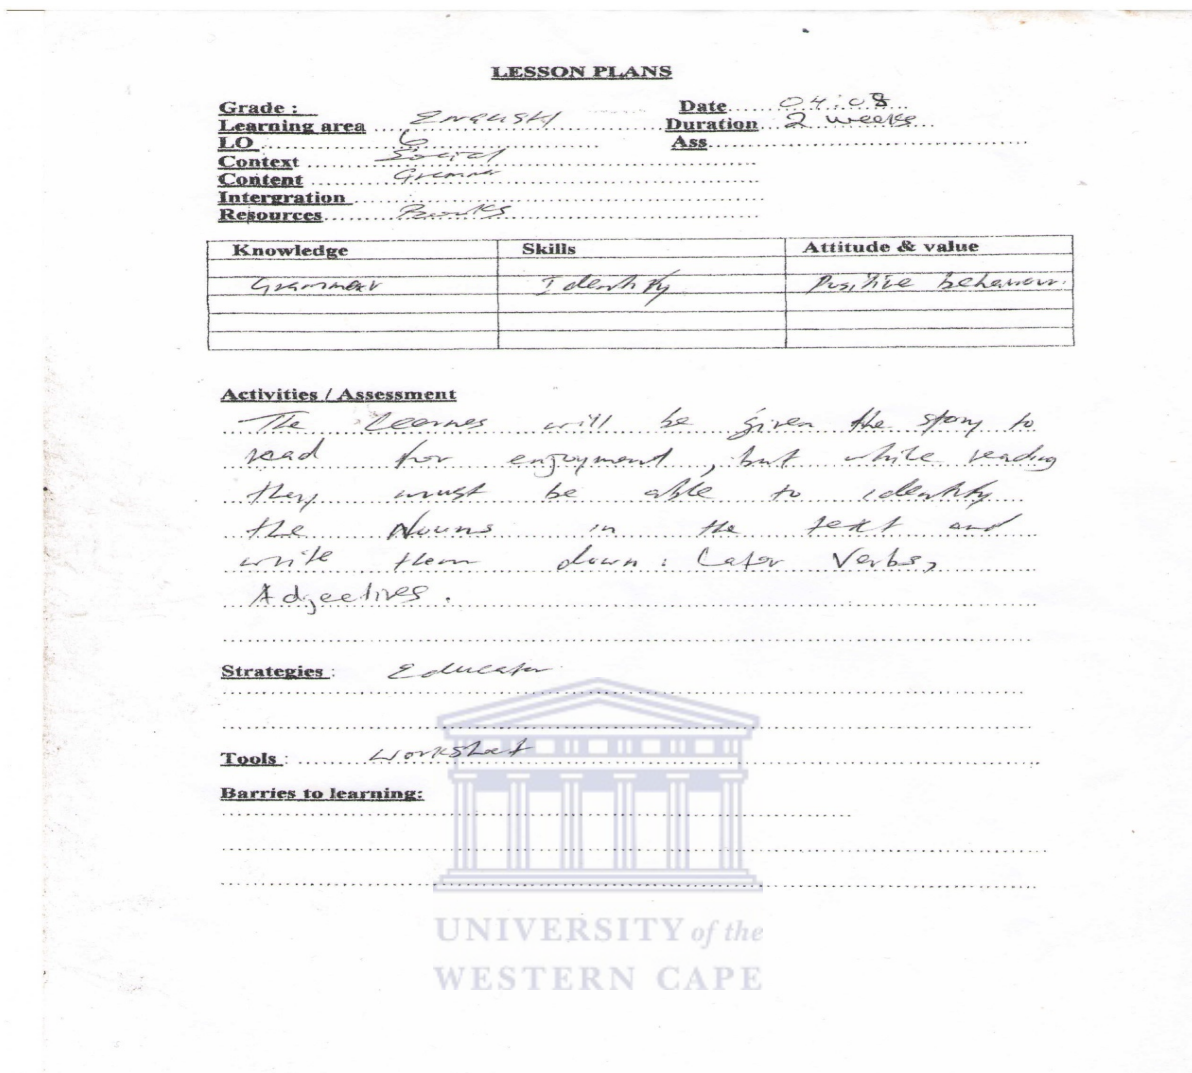 LESSON PLANS
Grade :
Date 04.08
Learning area English
Duration 2 weeks
LO 6
Ass
Context Social
Content Grammar
Intergration
Resources Books
Knowledge Skills Attitude & value
Grammar Identify Positive behaviour.
Activities / Assessment
The Learnes will be given the story to
read for enjoyment, but while reading
they must be able to identify
the Nouns in the text and
write them down : Later Verbs,
Adjectives.
Strategies : Educator
Tools : Worksheet
Barries to learning:
UNIVERSITY of the
WESTERN CAPE